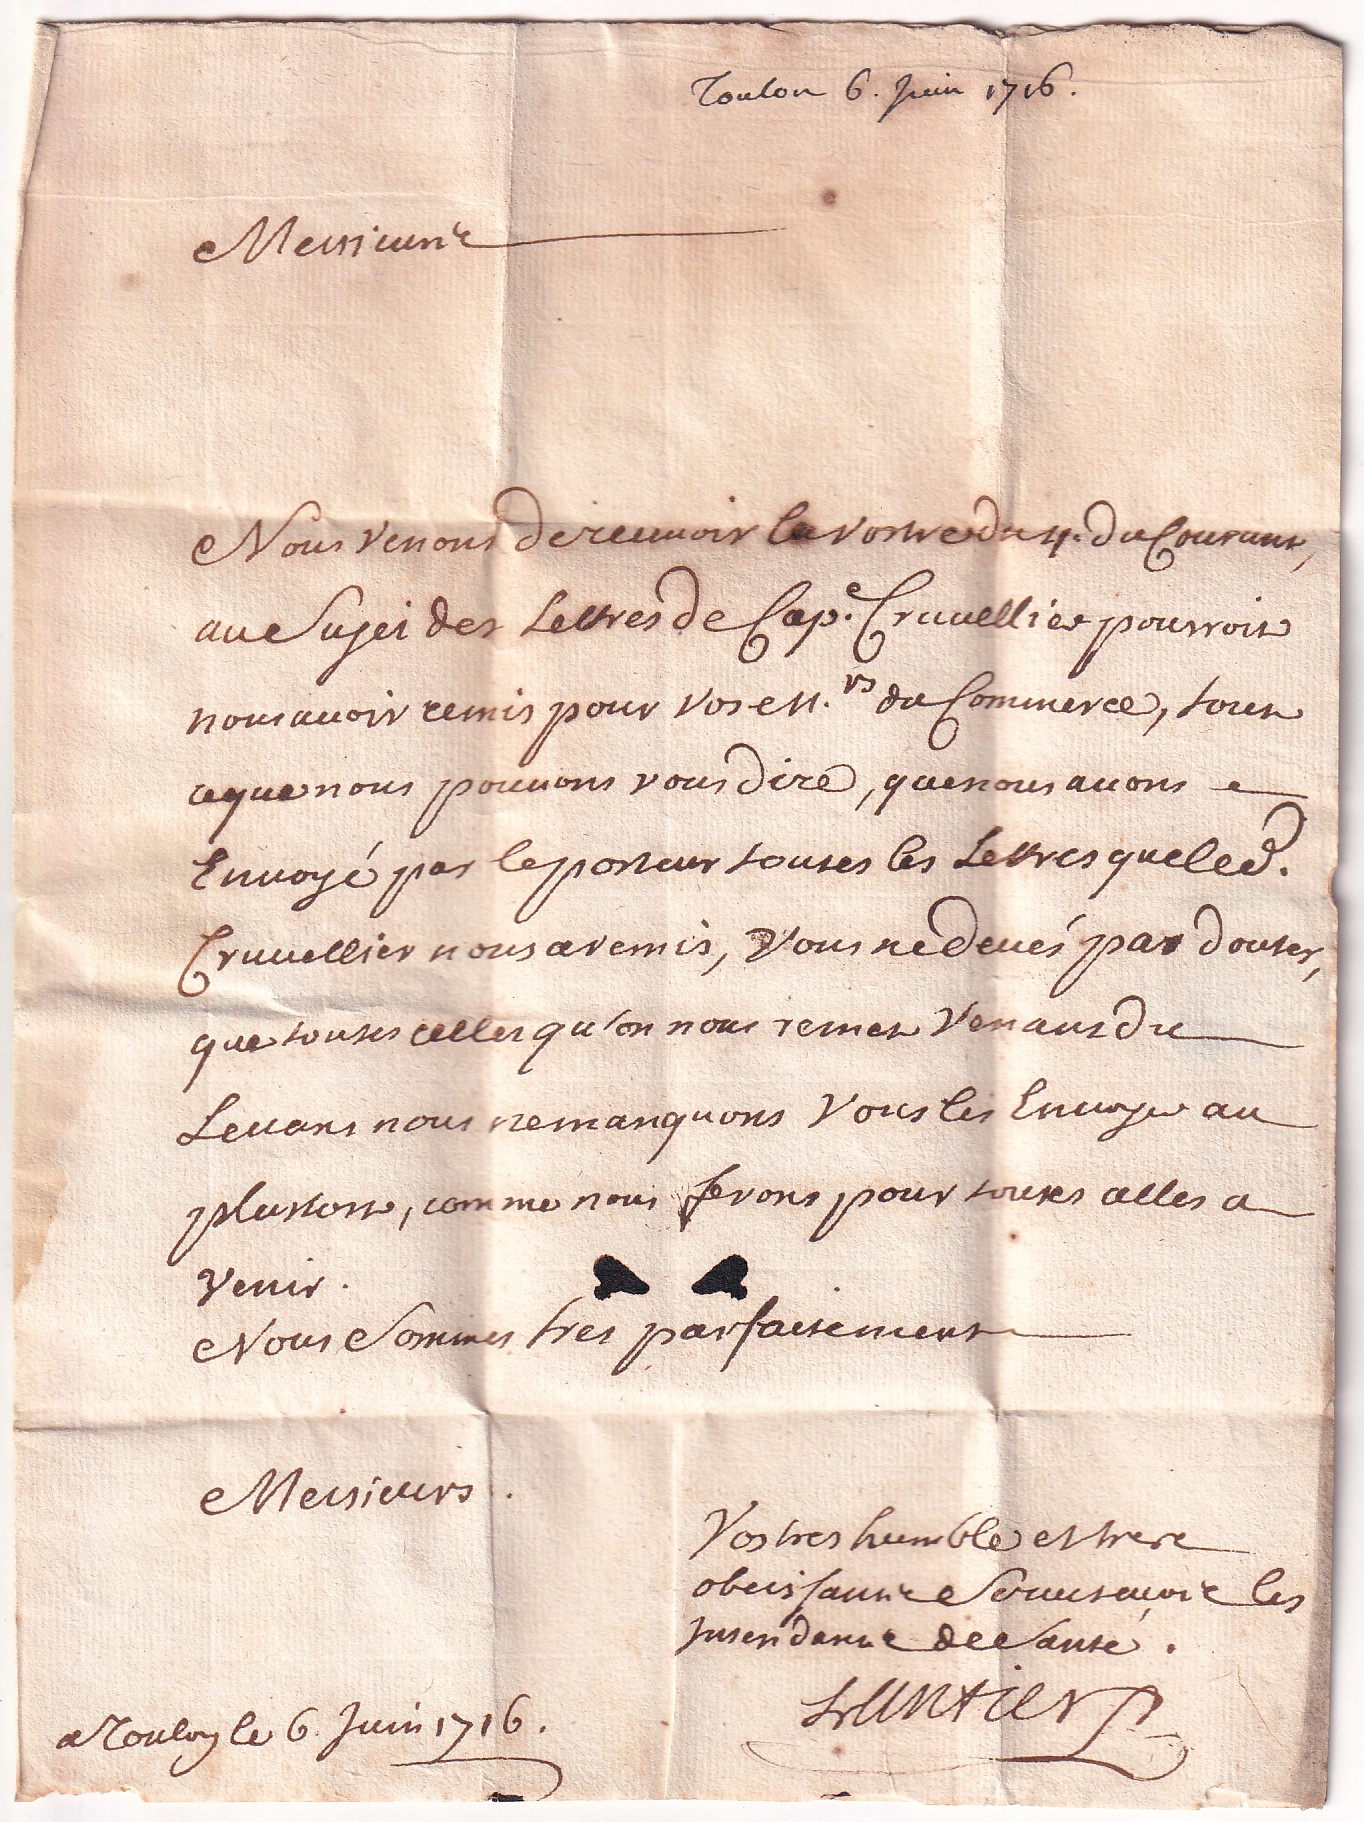 Toulon 6. Juin 1716.
Messieurs
Nous venons de recevoir la vostre du 4. du Courant,
au Sujet des Lettres de Cap.e Cruvellier pourroit
nous avoir remis pour vos M.rs du Commerce, tout
ce que nous pouvons vous dire, que nous avons
Envoyé par le porteur toutes les Lettres que led.
Cruvellier nous a remis, Vous ne devés pas douter,
que toutes celles qu'on nous remet Venant du
Levant nous ne manquons Vous les Envoyer au
plustost, comme nous ferons pour toutes celles a
venir.
Nous Sommes tres parfaitement
Messieurs.
Vos tres humble et tres
obeissants Serviteurs les
Intendants de Santé.
a Toulon le 6 Juin 1716.